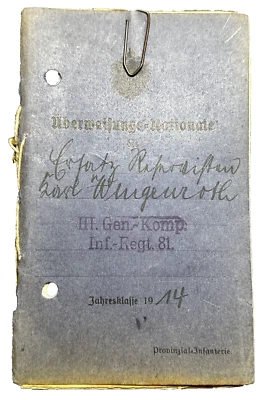 Überweisungs-Nationale
des
Ersatz Reservisten
Karl Wingenroth
III. Gen.-Komp.
Inf.-Regt. 81.
Jahresklasse 1914
Provinzial-Infanterie.